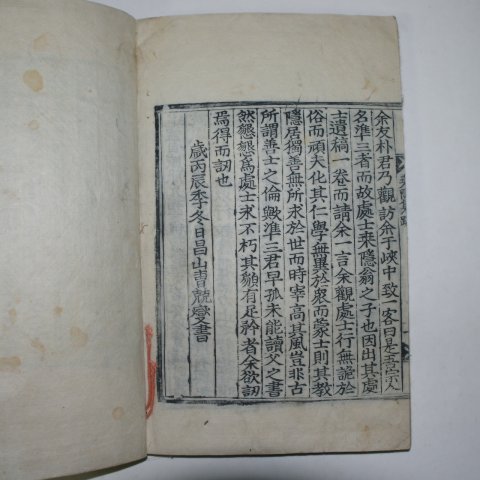 余友朴君乃觀訪余于峽中致一客曰是吾宗人
名準三者而故處士來隱翁之子也因出其處
士遺稿一卷而請余一言余觀處士行無詭於
俗而頑夫化其仁學無異於衆而蒙士則其教
隱居獨善無所求於世而時宰高其風豈非古
所謂善士之倫歟準三君早孤未能讀父之書
然懇懇爲處士求不朽其願有足矜者余欲訒
焉得而訒也
歲丙辰季冬日昌山曺兢燮書